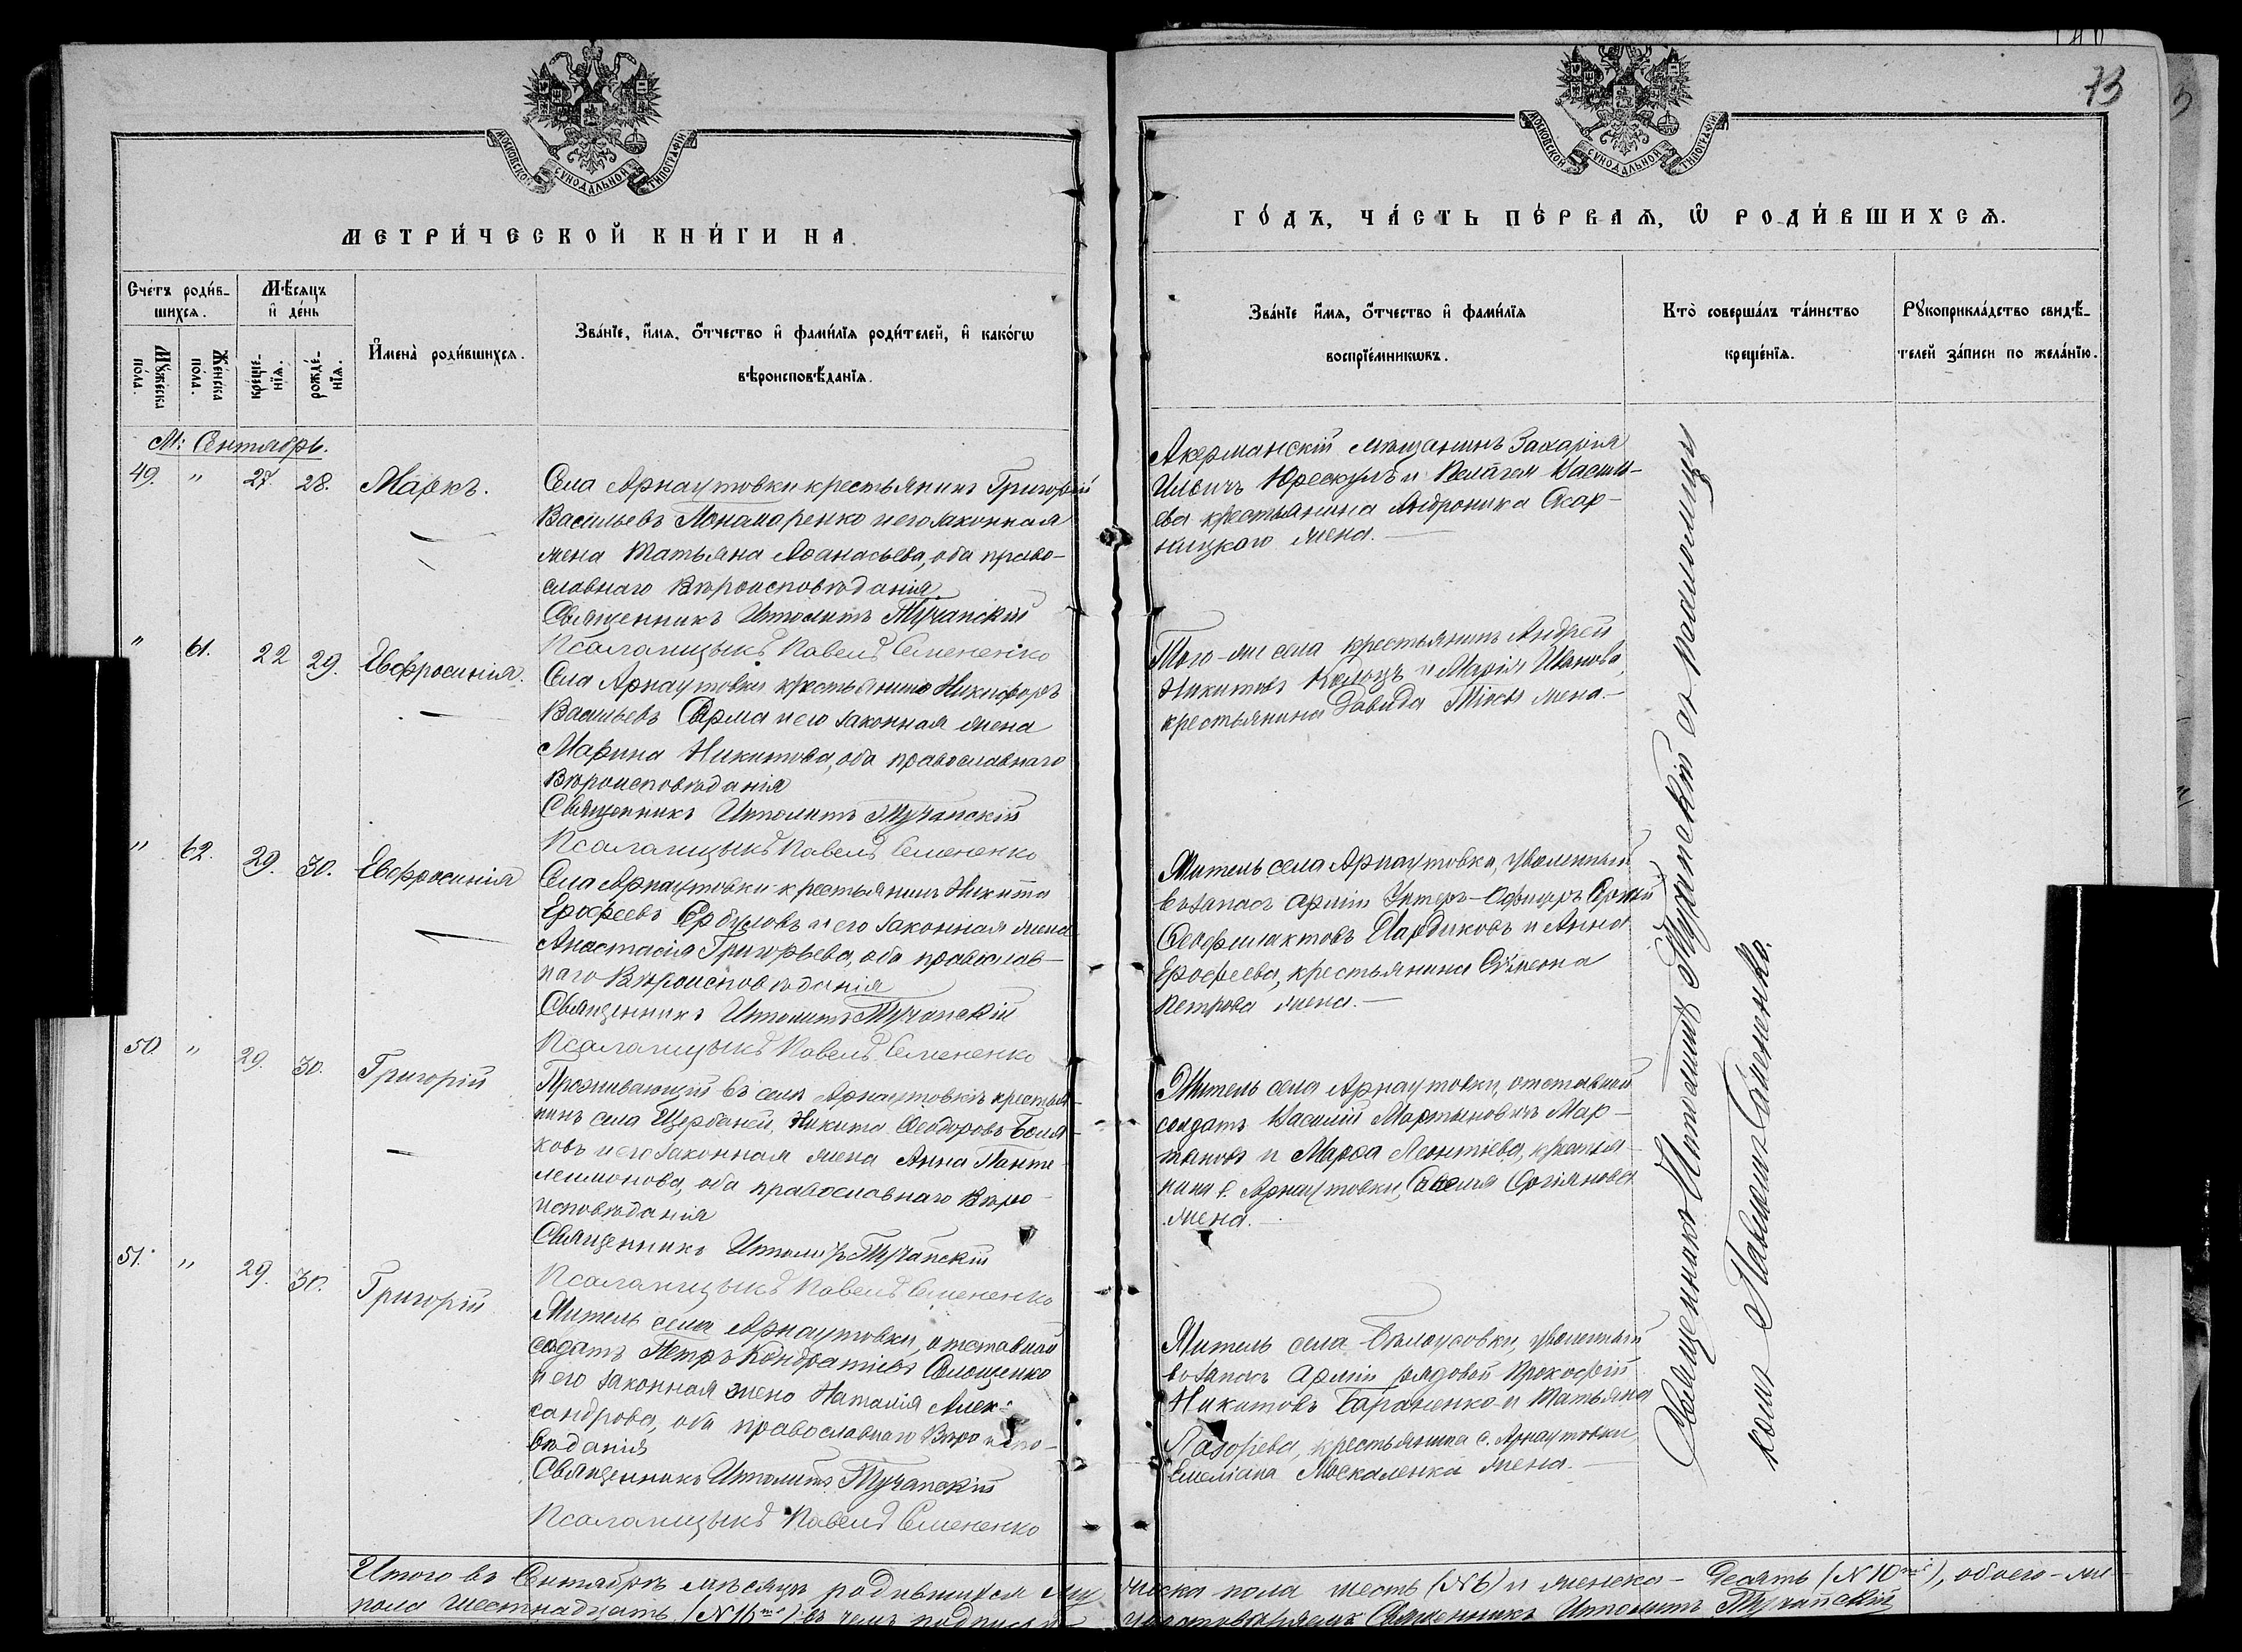 МОСКОВСКОЙ СѴНОДАЛЬНОЙ ТИПОГРАФІИ
МЕТРИ́ЧЕСКОЙ КНИ́ГИ НА
Сче́тъ роди́в-
шихсѧ.
Мꙋ́жеска
по́ла.
Же́нска
по́ла.
Мѣ́сѧцъ
и҆ де́нь
креще́-
нїѧ.
рожде́-
нїѧ.
И҆мена̀ роди́вшихсѧ.
Зва́нїе, и҆́мѧ, ѻ҆́тчество и҆ фами́лїѧ роди́телей, и҆ како́гѡ
вѣроисповѣ́данїѧ.
М: Сентябрь.
49. " 27. 28. Маркъ.
Села Арнаутовки крестьянинъ Григорій
Васильевъ Понамаренко и его законная
жена Татьяна Аѳанасьева, оба право-
славнаго вѣроисповѣданія
Священникъ Ипполитъ Тучапскій
Псаломщикъ Павелъ Семененко
" 61. 22 29. Евфросинія.
Села Арнаутовки крестьянинъ Никифоръ
Васильевъ Сырма и его законная жена
Марина Никитова, оба православнаго
вѣроисповѣданія
Священникъ Ипполитъ Тучапскій
Псаломщикъ Павелъ Семененко
" 62. 29. 30. Евфросинія
Села Арнаутовки крестьянинъ Никита
Ерофеевъ Сербуловъ и его законная жена
Анастасія Григорьева, оба православ-
наго вѣроисповѣданія
Священникъ Ипполитъ Тучапскій
Псаломщикъ Павелъ Семененко
50. " 29. 30. Григорій
Проживающій въ селѣ Арнаутовкѣ крестья-
нинъ села Щербаней, Никита Ѳеодоровъ Боля-
ковъ и его законная жена Анна Панте-
леимонова, оба православнаго вѣро-
исповѣданія
Священникъ Ипполитъ Тучапскій
Псаломщикъ Павелъ Семененко
51. " 29. 30. Григорій
Житель села Арнаутовки, отставной
солдатъ Петръ Кондратіевъ Слющенко
и его законная жена Наталія Алек-
сандрова, оба православнаго вѣроиспо-
вѣданія
Священникъ Ипполитъ Тучапскій
Псаломщикъ Павелъ Семененко
Итого въ Сентябрѣ мѣсяцѣ родившихся му
пола шестнадцать (№16ть) въ чемъ подписью
73
МОСКОВСКОЙ СѴНОДАЛЬНОЙ ТИПОГРАФІИ
ГО́ДЪ, ЧА́СТЬ ПЕ́РВАѦ, Ѡ҆ РОДИ́ВШИХСѦ.
Зва́нїе и҆́мѧ, ѻ҆́тчество и҆ фами́лїѧ
воспрїе́мникѡвъ.
Кто̀ соверша́лъ та́инство
креще́нїѧ.
Рꙋкоприкла́дство свидѣ́-
телей за́писи по жела́нїю.
Акерманскій мѣщанинъ Захарія
Ильичъ Юрескулъ и Пелагея Васил-
ева крестьянина Андроника Скар-
ницкого жена.
Того-же села крестьянинъ Андрей
Никитовъ и Марія Иванова,
крестьянина Давида жена.
Житель села Арнаутовки, уволенный
въ запасъ арміи Унтеръ-Офицеръ
Ѳеофилактовъ и Анна
Ерофеева, крестьянина Симеона
Петрова жена.
Житель села Арнаутовки, отставной
солдатъ Василій Мартыновичъ Мар-
тыновъ и Марѳа Леонтіева, крестья-
нина с. Арнаутовки, Савелія жена.
Житель села Бѣлоусовки, уволенный
въ запасъ арміи рядовой Прокофій
Никитовъ Бараненко и Татьяна
Лазорева, крестьянина с. Арнаутовки
Емеліана Москаленка жена.
Священникъ Ипполитъ Тучапскій съ псаломщи-
комъ Павломъ Семененко.
жеска пола шесть (№6) и женска - десять (№10ть), обоего-же
удостовѣряемъ Священникъ Ипполитъ Тучапскій